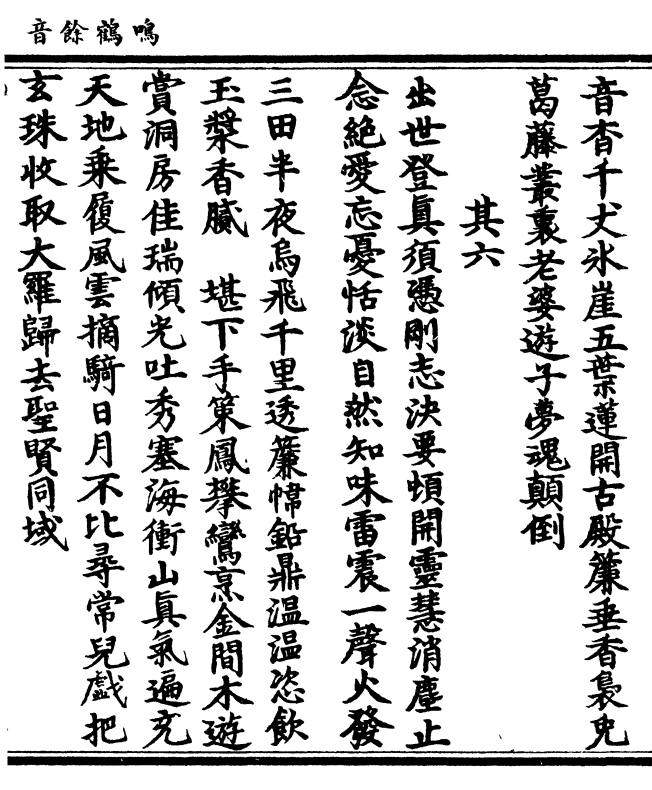 鳴鶴餘音
音杳千丈氷崖五葉蓮開古殿簾垂香裊兠
葛藤叢裏老婆遊子夢魂顛倒
其六
出世登眞須憑剛志決要頓開靈慧消塵止
念絶愛忘憂恬淡自然知味雷震一聲火發
三田半夜烏飛千里透簾幃鉛鼎温温恣飲
玉漿香膩　堪下手䇿鳳攀鸞烹金間木遊
賞洞房佳瑞傾光吐秀塞海衝山眞氣遍充
天地乘履風雲摘騎日月不比尋常兒戲把
玄珠收取大羅歸去聖賢同域